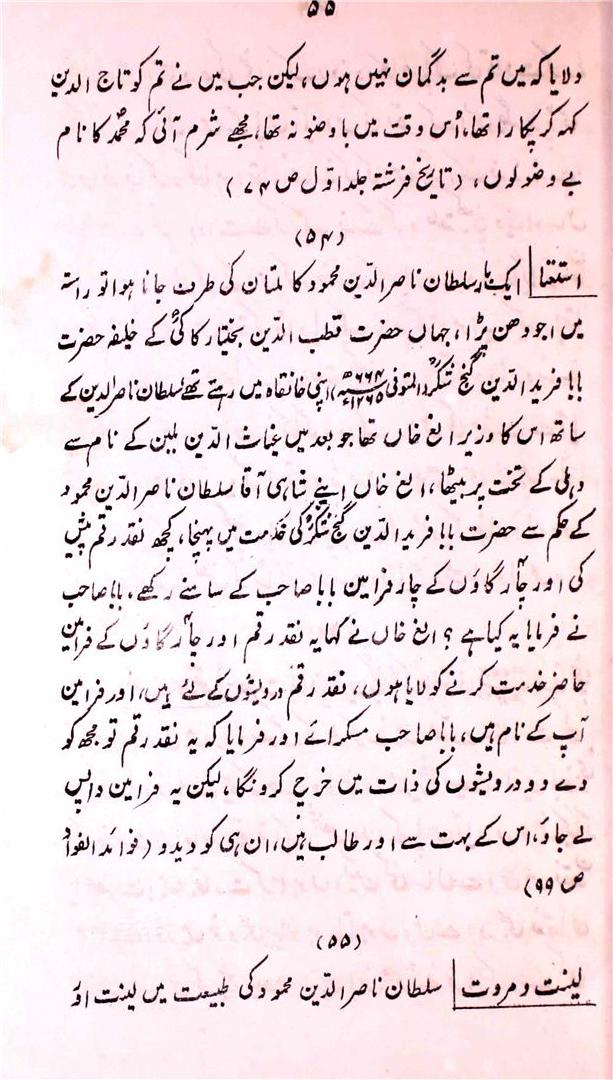 ۵۵
دلایا کہ میں تم سے بدگمان نہیں ہوں، لیکن جب میں نے تم کو تاج الدین
کہہ کر پکارا تھا، اُس وقت میں با وضو نہ تھا، مجھے شرم آئی کہ محمدؐ کا نام
بے وضو لوں، (تاریخ فرشتہ جلد اوّل ص ۷۴)
(۵۴)
استغنا ایک بار سلطان ناصر الدّین محمود کا ملتان کی طرف جانا ہوا تو راستہ
میں اجودھن پڑا، جہاں حضرت قطب الدّین بختیار کاکیؒ کے خلیفہ حضرت
بابا فرید الدّین گنج شکرؒ (المتوفی ۶۶۴ھ ۱۲۶۵ء) اپنی خانقاہ میں رہتے تھے، سلطان ناصر الدین کے
ساتھ اس کا وزیر الغ خاں تھا جو بعد میں غیاث الدّین بلبن کے نام سے
دہلی کے تخت پر بیٹھا، الغ خاں اپنے شاہی آقا سلطان ناصر الدّین محمود
کے حکم سے حضرت بابا فرید الدّین گنج شکرؒ کی خدمت میں پہنچا، کچھ نقد رقم پیش
کی اور چار گاؤں کے چار فرامین بابا صاحب کے سامنے رکھے، بابا صاحب
نے فرمایا یہ کیا ہے؟ الغ خاں نے کہا یہ نقد رقم اور چار گاؤں کے فرامین
حاضر خدمت کرنے کو لایا ہوں، نقد رقم درویشوں کے لئے ہیں، اور فرامین
آپ کے نام ہیں، بابا صاحب مسکرائے اور فرمایا کہ یہ نقد رقم تو مجھ کو
دے دو درویشوں کی ذات میں خرچ کرونگا، لیکن یہ فرامین واپس
لے جاؤ، اس کے بہت سے اور طالب ہیں، ان ہی کو دیدو (فوائد الفواد
ص ۹۹)
(۵۵)
لینت و مروت سلطان ناصر الدّین محمود کی طبیعت میں لینت اور